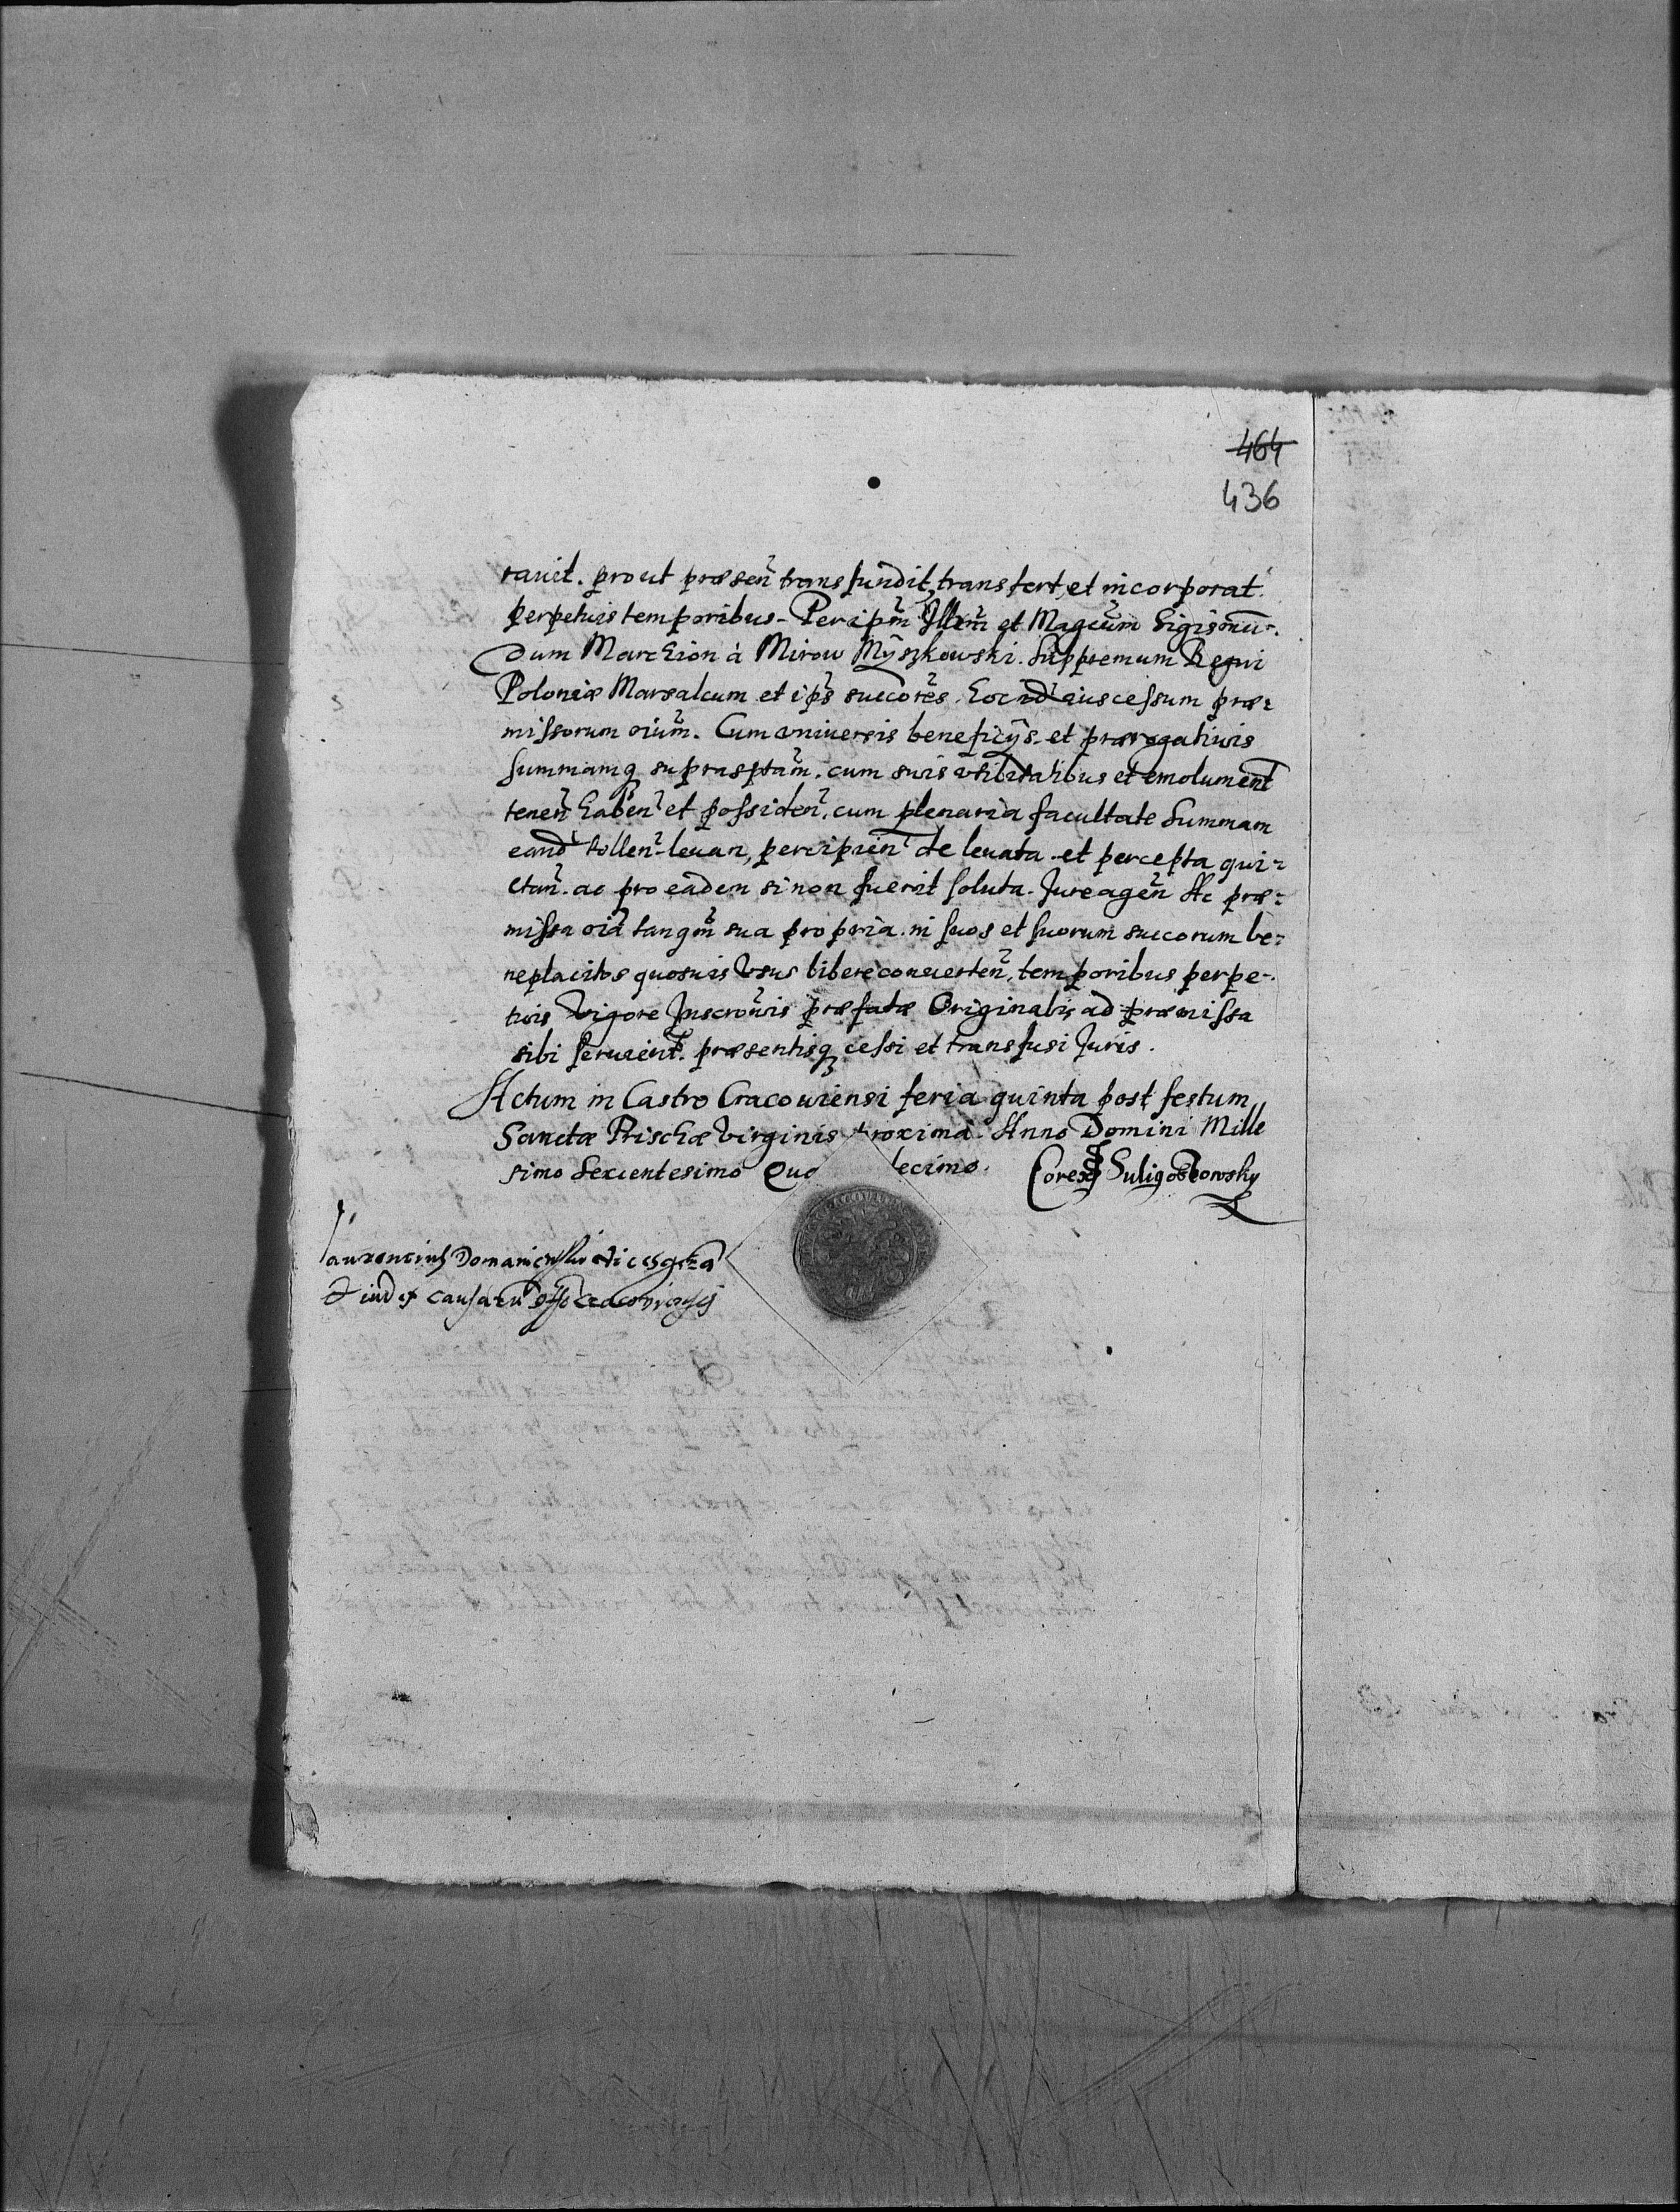 464
436
ravit. prout præsen̄ transfundit, transfert, et incorporat
perpetuis temporibus. Per ipm̄ Illm̄ et Magcūm Sigismū-
dum Marchion à Mirow Mÿszkowski. Suppremum Regni
Poloniæ Marsalcum et ips̄ succorēs. hoc īd eius cessum præ-
missorum oium̄. Cum universis beneficÿs et prærogativis
summamq suprasptam̄. cum suis vtilitatibus et emolument
tenen̄ haben̄ et possiden̄, cum plenaria facultate Summam
eand tollen̄ levan, percipien̄ de levata et percepta qui-
ctan̄. ac pro eadem si non fuerit soluta. Jure agen̄ Ac præ-
missa oiā tanqm̄ sua propria. in suos et suorum succorum be-
neplacitos quosuis Vsus libere conuerten̄, temporibus perpe-
tuis Vigore Inscrōnis præfatæ Originalis ad præmissa
sibi seruient. præsentisq cessi et transfusi Juris.
Actum in Castro Cracouiensi feria quinta post festum
Sanctæ Prischæ Virginis proxima. Anno Domini Mille
simo Sexcentesimo Qua decimo. Corex Suligostowsky
Laurentius Domaniewski Vicesgr̄a
& iudex causarū offo Cracoviensis